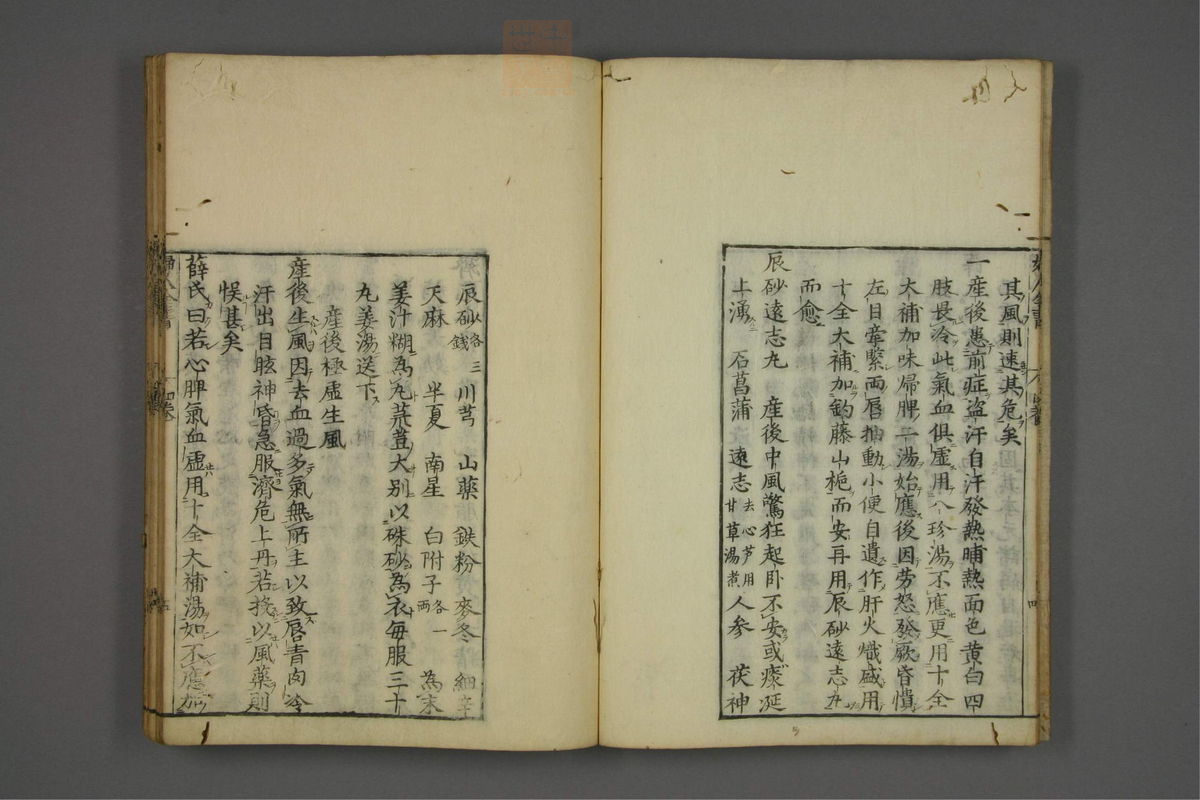 其風則速其危矣
一産後患前症盗汗自汗發熱晡熱面色黄白四
肢畏冷此氣血俱虚用八珍湯不應更用十全
大補加味歸脾二湯始應後因労怒發厥昏憒
左目牽緊兩唇抽動小便自遺作肝火熾盛用
十全大補加鈎藤山梔而安再用辰砂遠志丸
而愈
辰砂遠志丸　産後中風驚狂起卧不安或痰涎
上湧　石菖蒲　遠志去心芦用甘草湯煮　人参　茯神
辰砂各三錢　川芎　山藥　鉄粉　麥冬　細辛
天麻　半夏　南星　白附子各一兩　為末
姜汁糊為丸菉荳大别以硃砂為衣毎服三十
丸姜湯送下
産後極虚生風
産後生風因去血過多氣無所主以致唇青肉冷
汗出目眩神昏急服濟危上丹若投以風藥則
悮甚矣
薛氏曰若心脾氣血虚用十全大補湯如不應加